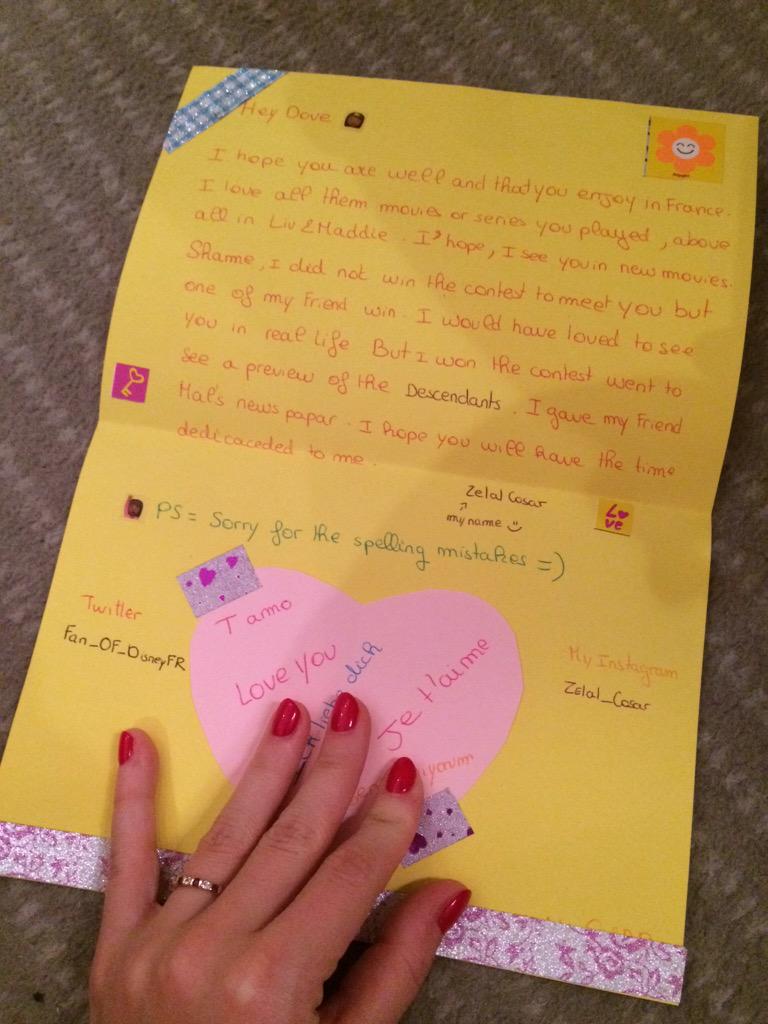 Hey Dove
I hope you are well and that you enjoy in France.
I love all them movies or series you played, above
all in Liv & Maddie. I'hope, I see you in new movies.
Shame, I did not win the contest to meet you but
one of my Friend win. I would have loved to see
you in real life But I won the contest went to
see a preview of the Descendants. I gave my Friend
Mal's news papar. I hope you will have the time
dedicaceded to me.
Zelal Cosar
my name
Love
PS = Sorry for the spelling mistakes =)
Twitter
Fan_OF_DisneyFR
T amo
Love you
dich
Je t'aime
My Instagram
Zelal_Cosar